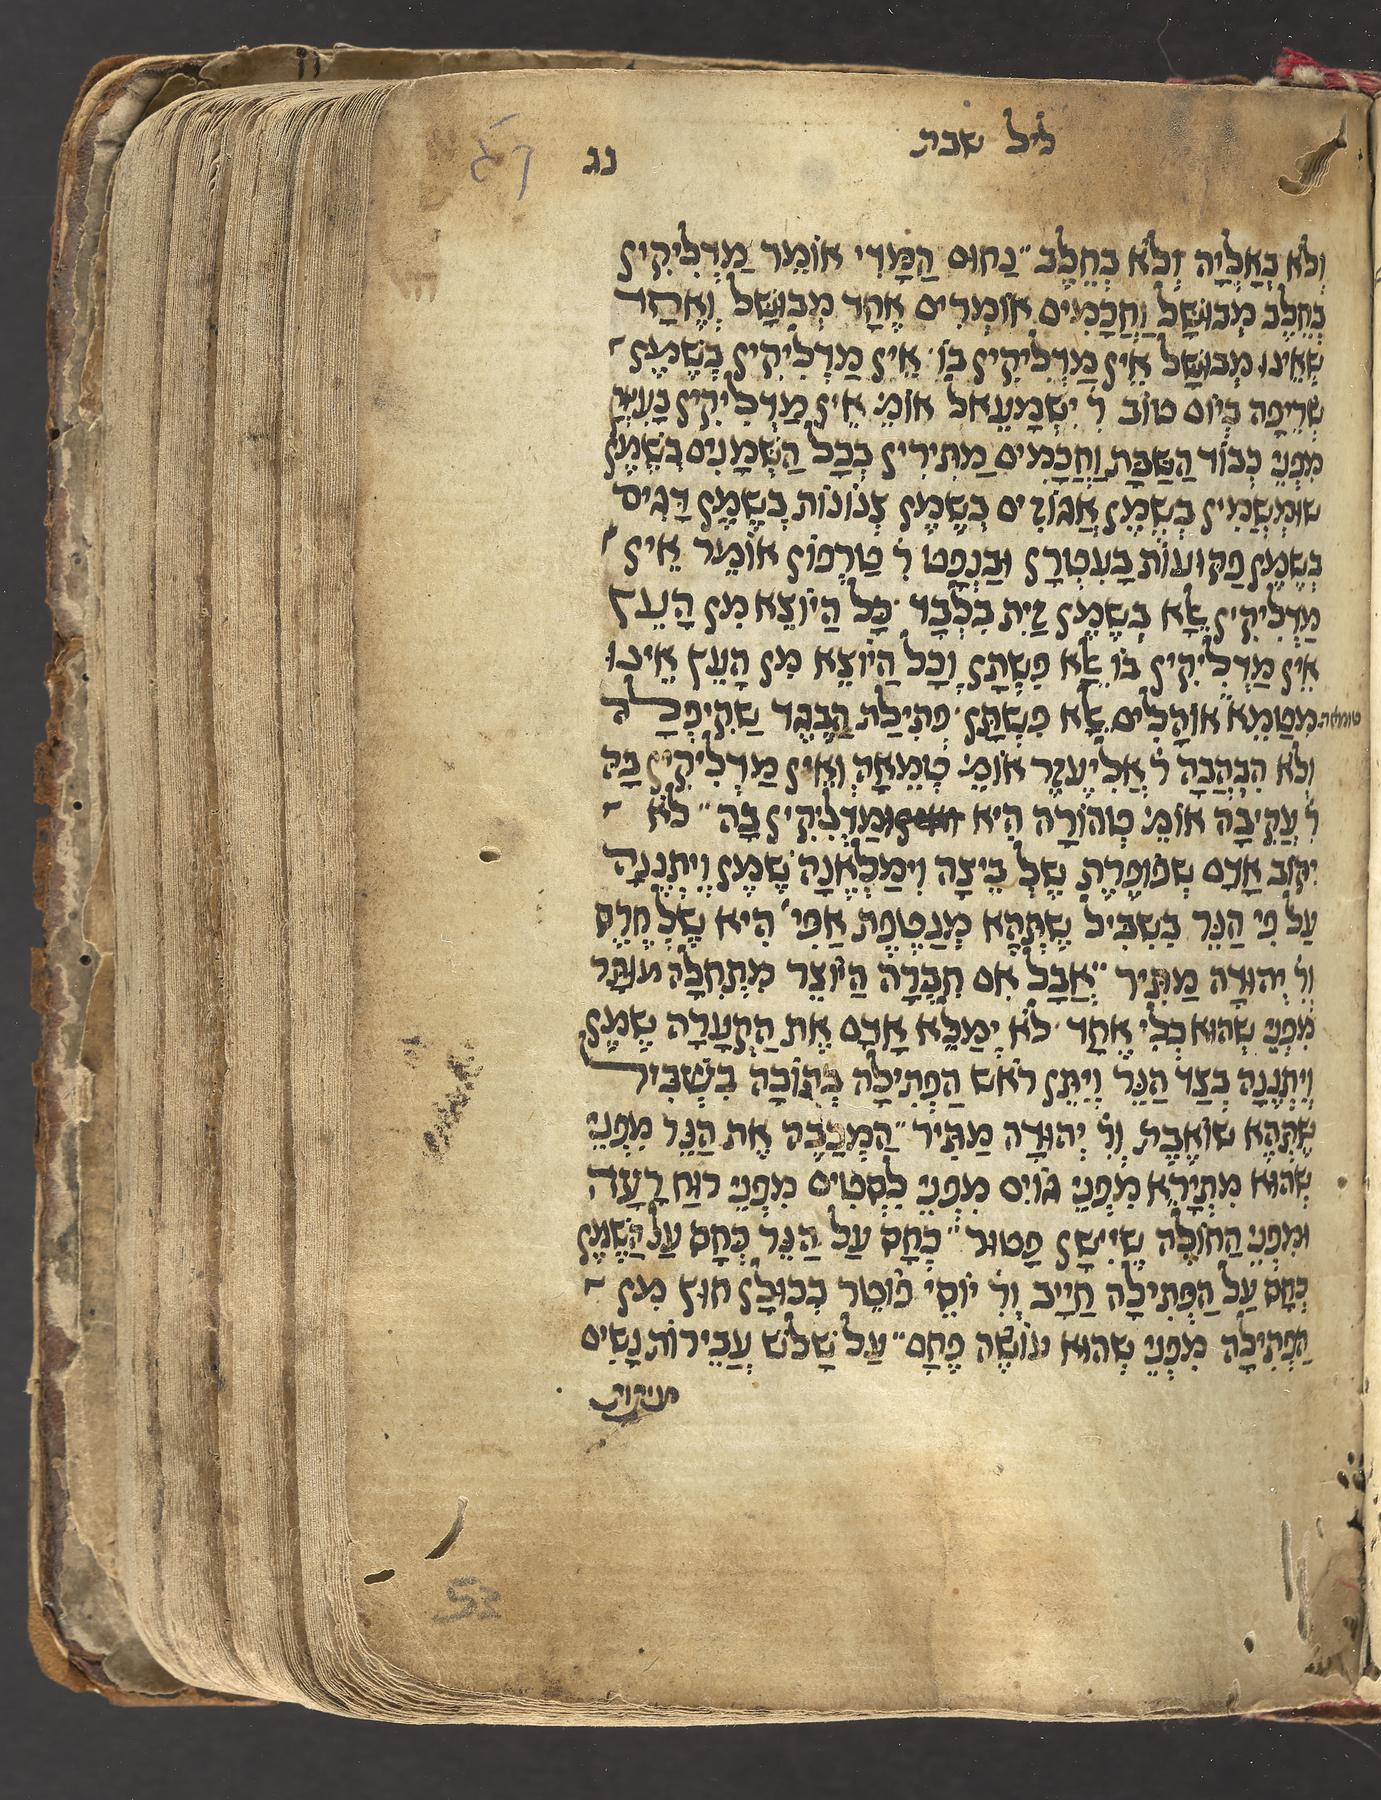 ליל שבת
נג
וְלֹא בְאַלְיָה וְלֹא בְחֵלֶב נַחוּם הַמָּדִי אוֹמֵר מַדְלִיקִין
בְּחֵלֶב מְבוּשָּׁל וַחֲכָמִים אוֹמְרִים אֶחָד מְבוּשָּׁל וְאֶחָד
שֶׁאֵינוּ מְבוּשָּׁל אֵין מַדְלִיקִין בּוֹ אֵין מַדְלִיקִין בְּשֶׁמֶן
שְׂרֵיפָה בְּיוֹם טוֹב ר' יִשְׁמָעֵאל אוֹמֵ' אֵין מַדְלִיקִין בָּעִטְרָן
מִפְּנֵי כְבוֹד הַשַּׁבָּת וַחֲכָמִים מַתִּירִין בְּכָל הַשְּׁמָנִים בְּשֶׁמֶן
שׁוּמְשְׁמִין בְּשֶׁמֶן אֱגוֹזִים בְּשֶׁמֶן צְנוֹנוֹת בְּשֶׁמֶן דָּגִים
בְּשֶׁמֶן פַּקּוּעוֹת בָּעִטְרָן וּבַנֵּפְט ר' טַרְפוֹן אוֹמֵר אֵין
מַדְלִיקִין אֶלָּא בְּשֶׁמֶן זַיִת בִּלְבָד כָּל הַיּוֹצֵא מִן הָעֵץ
אֵין מַדְלִיקִין בּוֹ אֶלָּא פִשְׁתָּן וְכָל הַיּוֹצֵא מִן הָעֵץ אֵינוּ
מִטַּמֵּא אוֹהָלִים אֶלָּא פִשְׁתָּן פְּתִילַת הַבֶּגֶד שֶׁקִּיפְּלָהּ
טומאת
וְלֹא הִבְהֲבָהּ ר' אֱלִיעֶזֶר אוֹמֵ' טְמֵאָה וְאֵין מַדְלִיקִין בָּהּ
ר' עֲקִיבָה אוֹמֵ' טְהוֹרָה הִיא וּמַדְלִיקִין בָּהּ לֹא
יִקּוֹב אָדָם שְׁפוֹפֶרֶת שֶׁל בֵּיצָה וִימַלְאֶנָּה שֶׁמֶן וְיִתְּנֶנָּה
עַל פִּי הַנֵּר בִּשְׁבִיל שֶׁתְּהֵא מְנַטֶּפֶת אֲפִי' הִיא שֶׁל חֶרֶס
וְר' יְהוּדָה מַתִּיר אֲבָל אִם חִבְּרָהּ הַיּוֹצֵר מִתְּחִלָּה מוּתָּר
מִפְּנֵי שֶׁהוּא כְּלִי אֶחָד לֹא יְמַלֵּא אָדָם אֶת הַקְּעָרָה שֶׁמֶן
וְיִתְּנֶנָּה בְּצַד הַנֵּר וְיִתֵּן רֹאשׁ הַפְּתִילָה בְּתוֹכָהּ בִּשְׁבִיל
שֶׁתְּהֵא שׁוֹאֶבֶת וְר' יְהוּדָה מַתִּיר הַמְכַבֶּה אֶת הַנֵּר מִפְּנֵי
שֶׁהוּא מִתְיָרֵא מִפְּנֵי גוֹיִם מִפְּנֵי לִסְטִים מִפְּנֵי רוּחַ רָעָה
וּמִפְּנֵי הַחוֹלֶה שֶׁיִּישָׁן פָּטוּר כְּחָס עַל הַנֵּר כְּחָס עַל הַשֶּׁמֶן
כְּחָס עַל הַפְּתִילָה חַיָּיב וְר' יוֹסֵי פוֹטֵר בְּכוּלָּן חוּץ מִן
הַפְּתִילָה מִפְּנֵי שֶׁהוּא עוֹשֶׂה פֶחָם עַל שָׁלֹשׁ עֲבֵירוֹת נָשִׁים
53